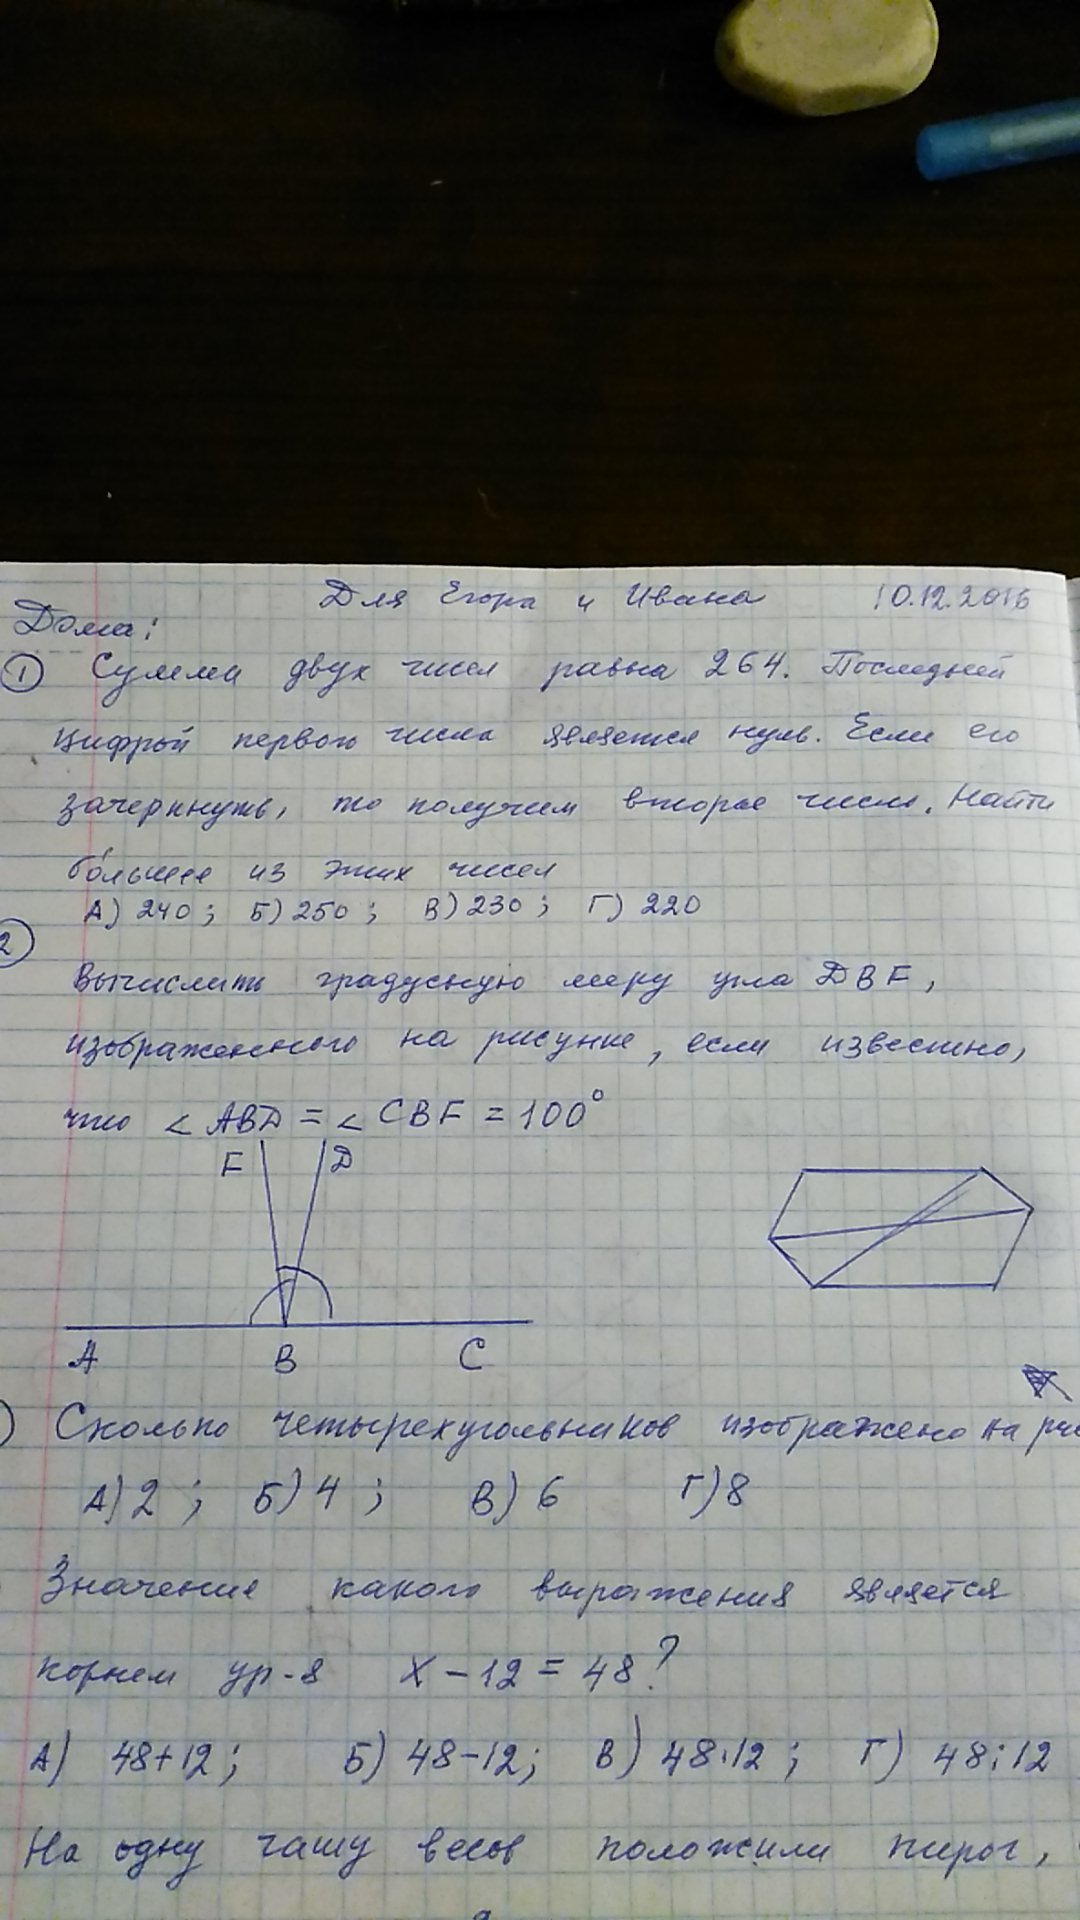 Для Егора и Ивана 10.12.2016
Дома:
① Сумма двух чисел равна 264. Последней
цифрой первого числа является нуль. Если его
зачеркнуть, то получим второе число. Найти
бо́льшее из этих чисел
А) 240; Б) 250; В) 230; Г) 220
②
Вычислить градусную меру угла DBF,
изображенного на рисунке, если известно,
что ∠ ABD = ∠ CBF = 100°
F D
A B C
) Сколько четырехугольников изображено на рис
А) 2; Б) 4; В) 6 Г) 8
Значение какого выражения является
корнем ур-я x - 12 = 48?
А) 48+12; Б) 48-12; В) 48·12; Г) 48:12
На одну чашу весов положили пирог,